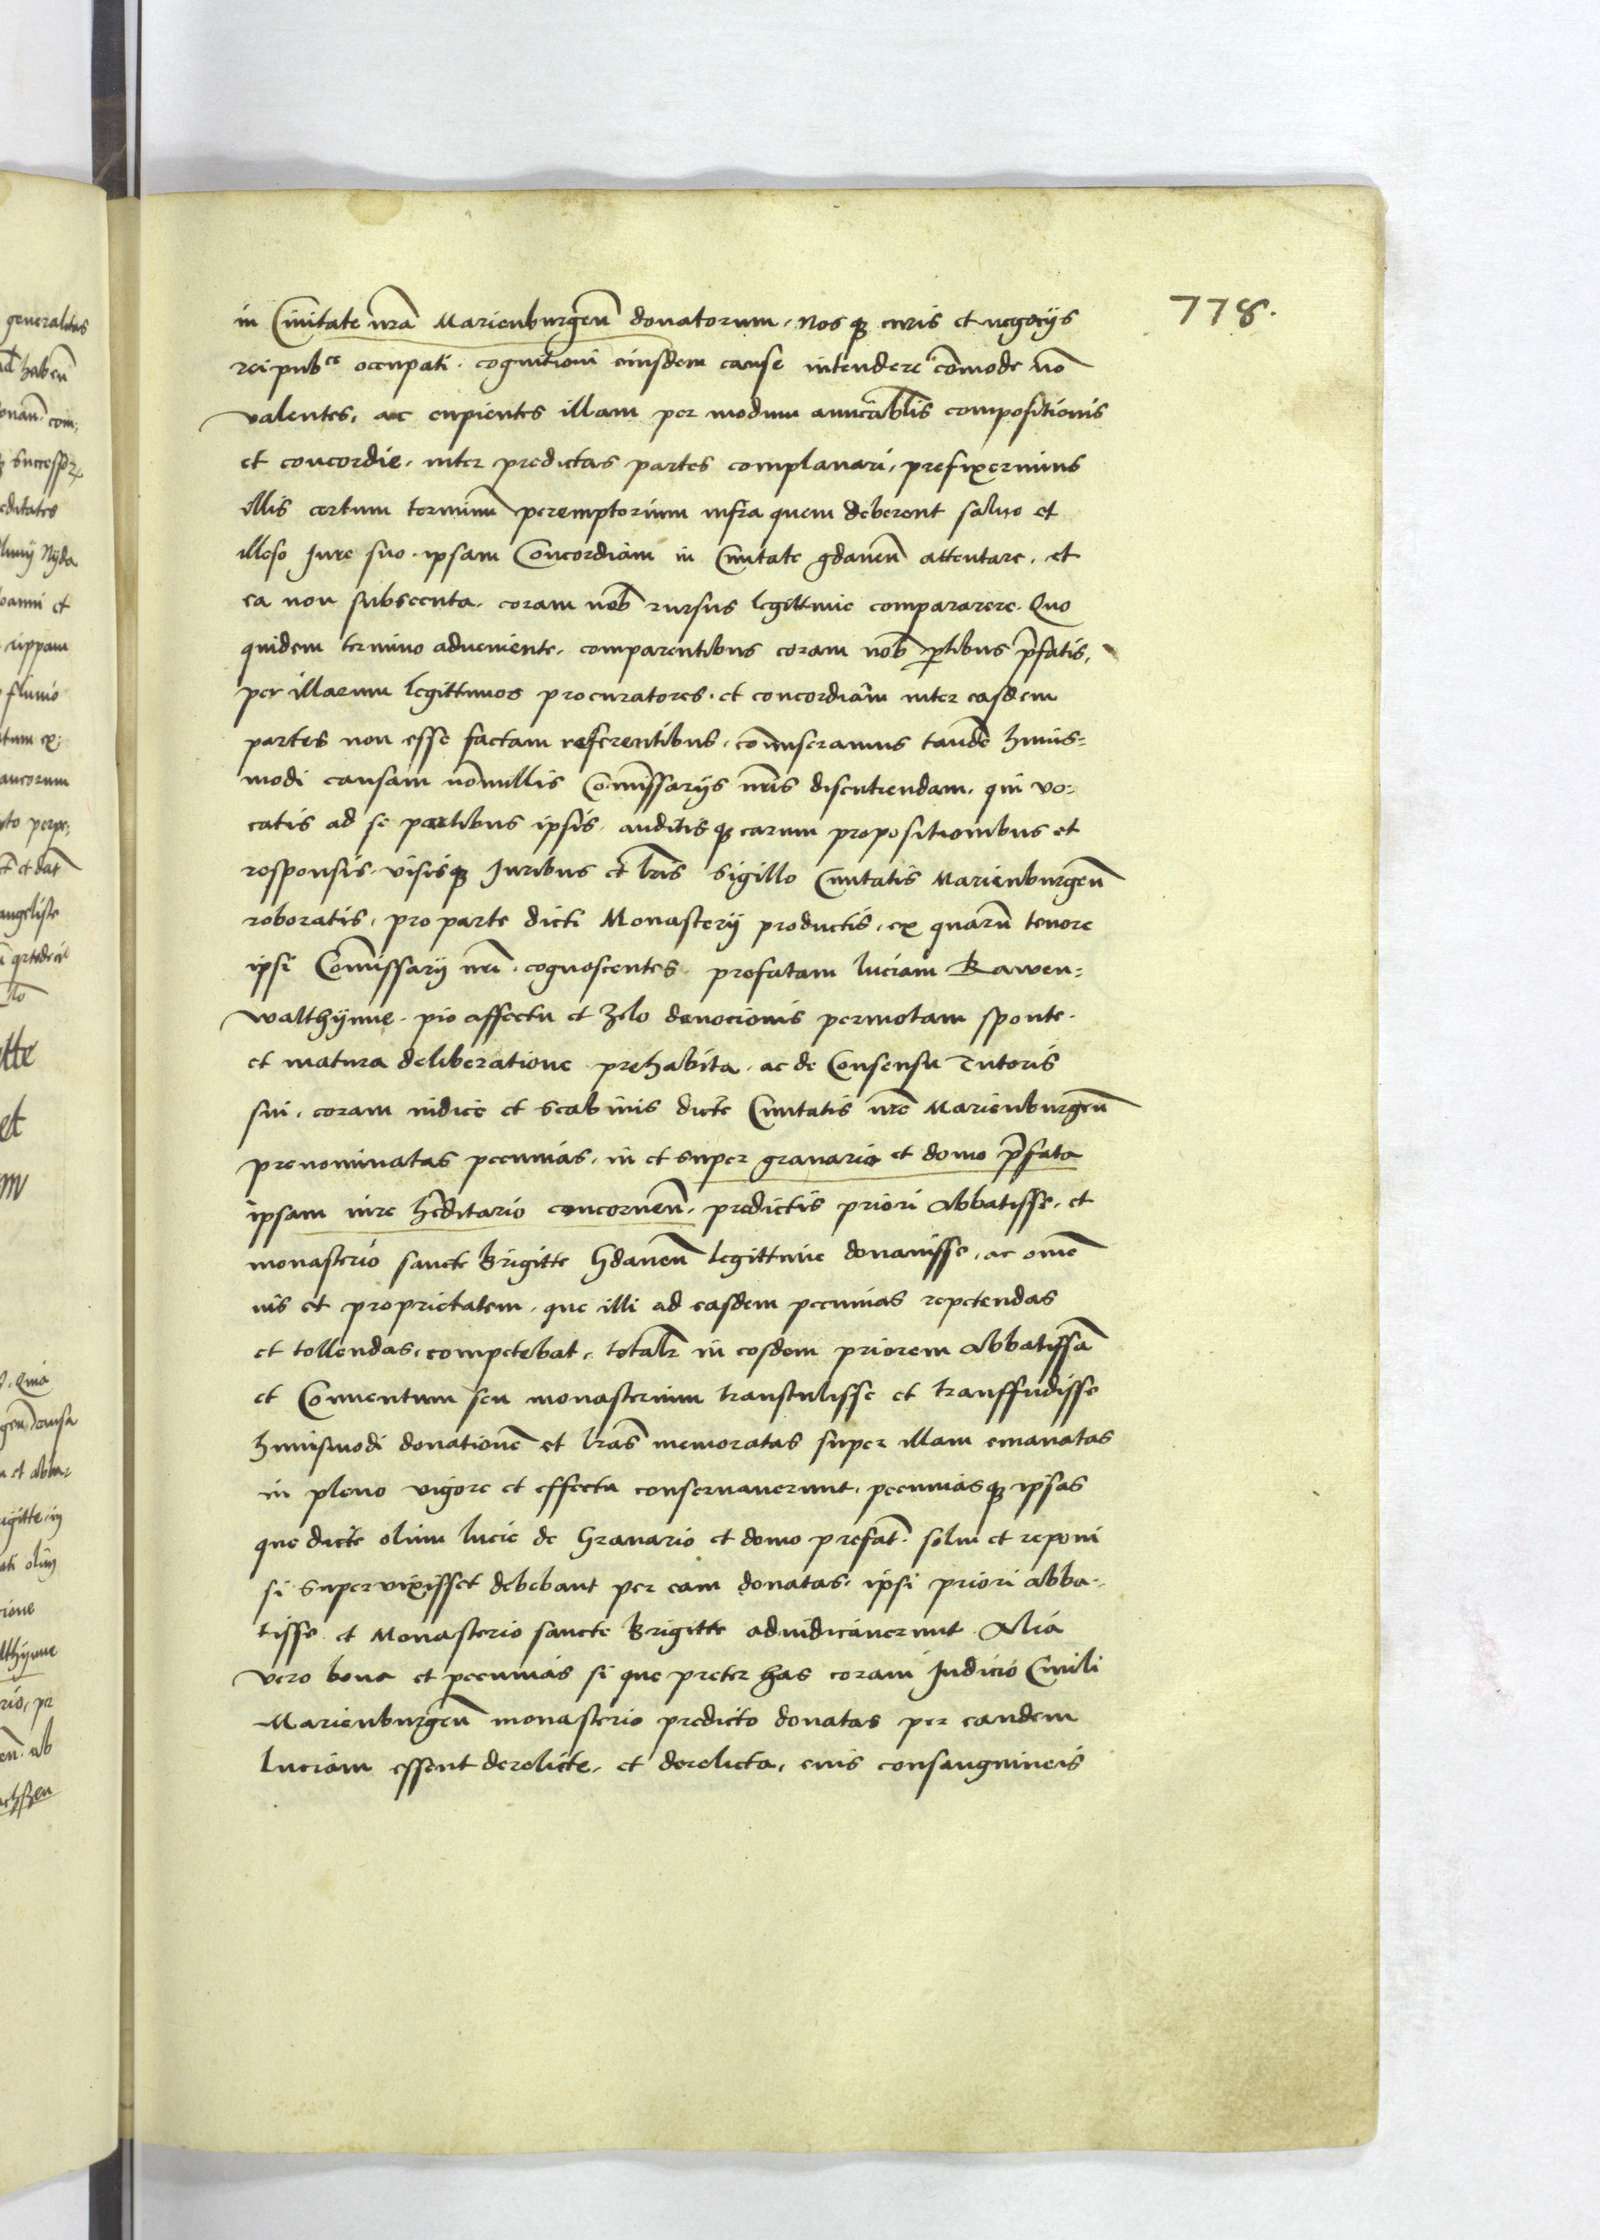 778.
in Civitate nrã Marienburgeñ donatorum. Nos qȝ curis et negocijs
rei pubce occupati. cognitioni eiusdem cause intendere cõmode nõ
valentes, ac cupientes illam per modum amicãblis compositionis
et concordie. inter predictas partes complanari, prefixeramus
illis certum terminũ peremptorium infra quem deberent saluo et
illeso Jure suo. ipsam Concordiam in Ciuitate gdaneñ attentare, et
ea non subsecuta. coram nob̃ rursus legittime compararere. Quo
quidem termino adueniente. comparentibus coram nob̃ p̃tibus p̃fatis,
per illarum legittimos procuratores. et concordiam inter easdem
partes non esse factam referentibus, com̃iseramus tandẽ huius=
modi causam nõnullis Com̃issarijs nr̃is discutiendam. qui vo=
catis ad se partibus ipsis. auditis qȝ earum propositionibus et
responsis. visisqȝ Juribus et lr̃is sigillo Ciuitatis Marienburgeñ
roboratis, pro parte dicti Monasterij productis, ex quarũ tenore
ipsi Com̃issarij nr̃i. cognoscentes prefatam luciam Rawen=
walthynne. pio affectu et zelo deuocionis permotam sponte.
et matura deliberatione prehabita. ac de Consensu Tutoris
sui. coram iudice et scabinis dictẽ Ciuitatis nr̃e Marienburgeñ
prenominatas pecunias. in et super granario et domo p̃fata
ipsam iure hẽditario concerneñ. predictis priori Abbatisse. et
monasterio sancte Brigitte Gdaneñ legittime donauisse. ac omẽ
ius et proprietatem. que illi ad easdem pecunias repetendas
et tollendas. competebat. totalr̃ in eosdem priorem Abbatissã
et Conuentum seu monasterium transtulisse et transfudisse
huiusmodi donationẽ et lr̃as memoratas super illam emanatas
in pleno vigore et effectu conseruauerunt. pecunias qȝ ipsas
que dictẽ olim lucie de Granario et domo prefat̃. solui et reponi
si supervixisset debebant per eam donatas. ipsi priori abba=
tisse et Monasterio sancte Brigitte adiudicauerunt Alia
vero bona et pecunias si que preter has coram Judicio Ciuili
Marienburgeñ monasterio predicto donatas per eandem
Luciam essent derelicte. et derelicta, eius consanguineis